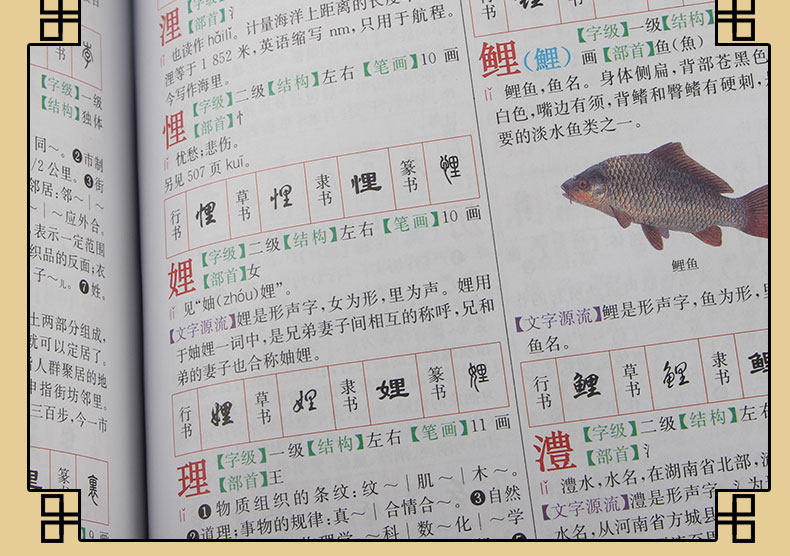 书
【字级】一级
【结构】独体
同～。❷市制
/2公里。❸街
邻居:邻～｜
～｜～应外合。
表示一定范围
织品的反面;衣
子～儿。❼姓。
土两部分组成,
就可以定居了。
人群聚居的地
申指街坊邻里。
三百步,今一市
篆书
浬
【部首】氵
也读作hǎilǐ。计量海洋上距离的长度
浬等于1 852米,英语缩写nm,只用于航程。
今写作海里。
悝
【字级】二级【结构】左右【笔画】10画
【部首】忄
忧愁;悲伤。
另见507页kuī。
行书 悝 草书 悝 隶书 悝 篆书 悝
娌
【字级】二级【结构】左右【笔画】10画
【部首】女
见“妯(zhóu)娌”。
【文字源流】娌是形声字,女为形,里为声。娌用
于妯娌一词中,是兄弟妻子间相互的称呼,兄和
弟的妻子也合称妯娌。
行书 娌 草书 娌 隶书 娌 篆书 娌
理
【字级】一级【结构】左右【笔画】11画
【部首】王
❶物质组织的条纹:纹～｜肌～｜木～。
❷道理;事物的规律:真～｜合情合～。❸自然
科｜数～化｜～学
鲤(鯉)
【字级】一级【结构】
画【部首】鱼(魚)
鲤鱼,鱼名。身体侧扁,背部苍黑色
白色,嘴边有须,背鳍和臀鳍有硬刺,
要的淡水鱼类之一。
鲤鱼
【文字源流】鲤是形声字,鱼为形,
鱼名。
行书 鲤 草书 鲤 隶书 鲤
澧
【字级】二级【结构】左右
【部首】氵
澧水,水名,在湖南省北部,
【文字源流】澧是形声字,氵为
水名,从河南省方城县